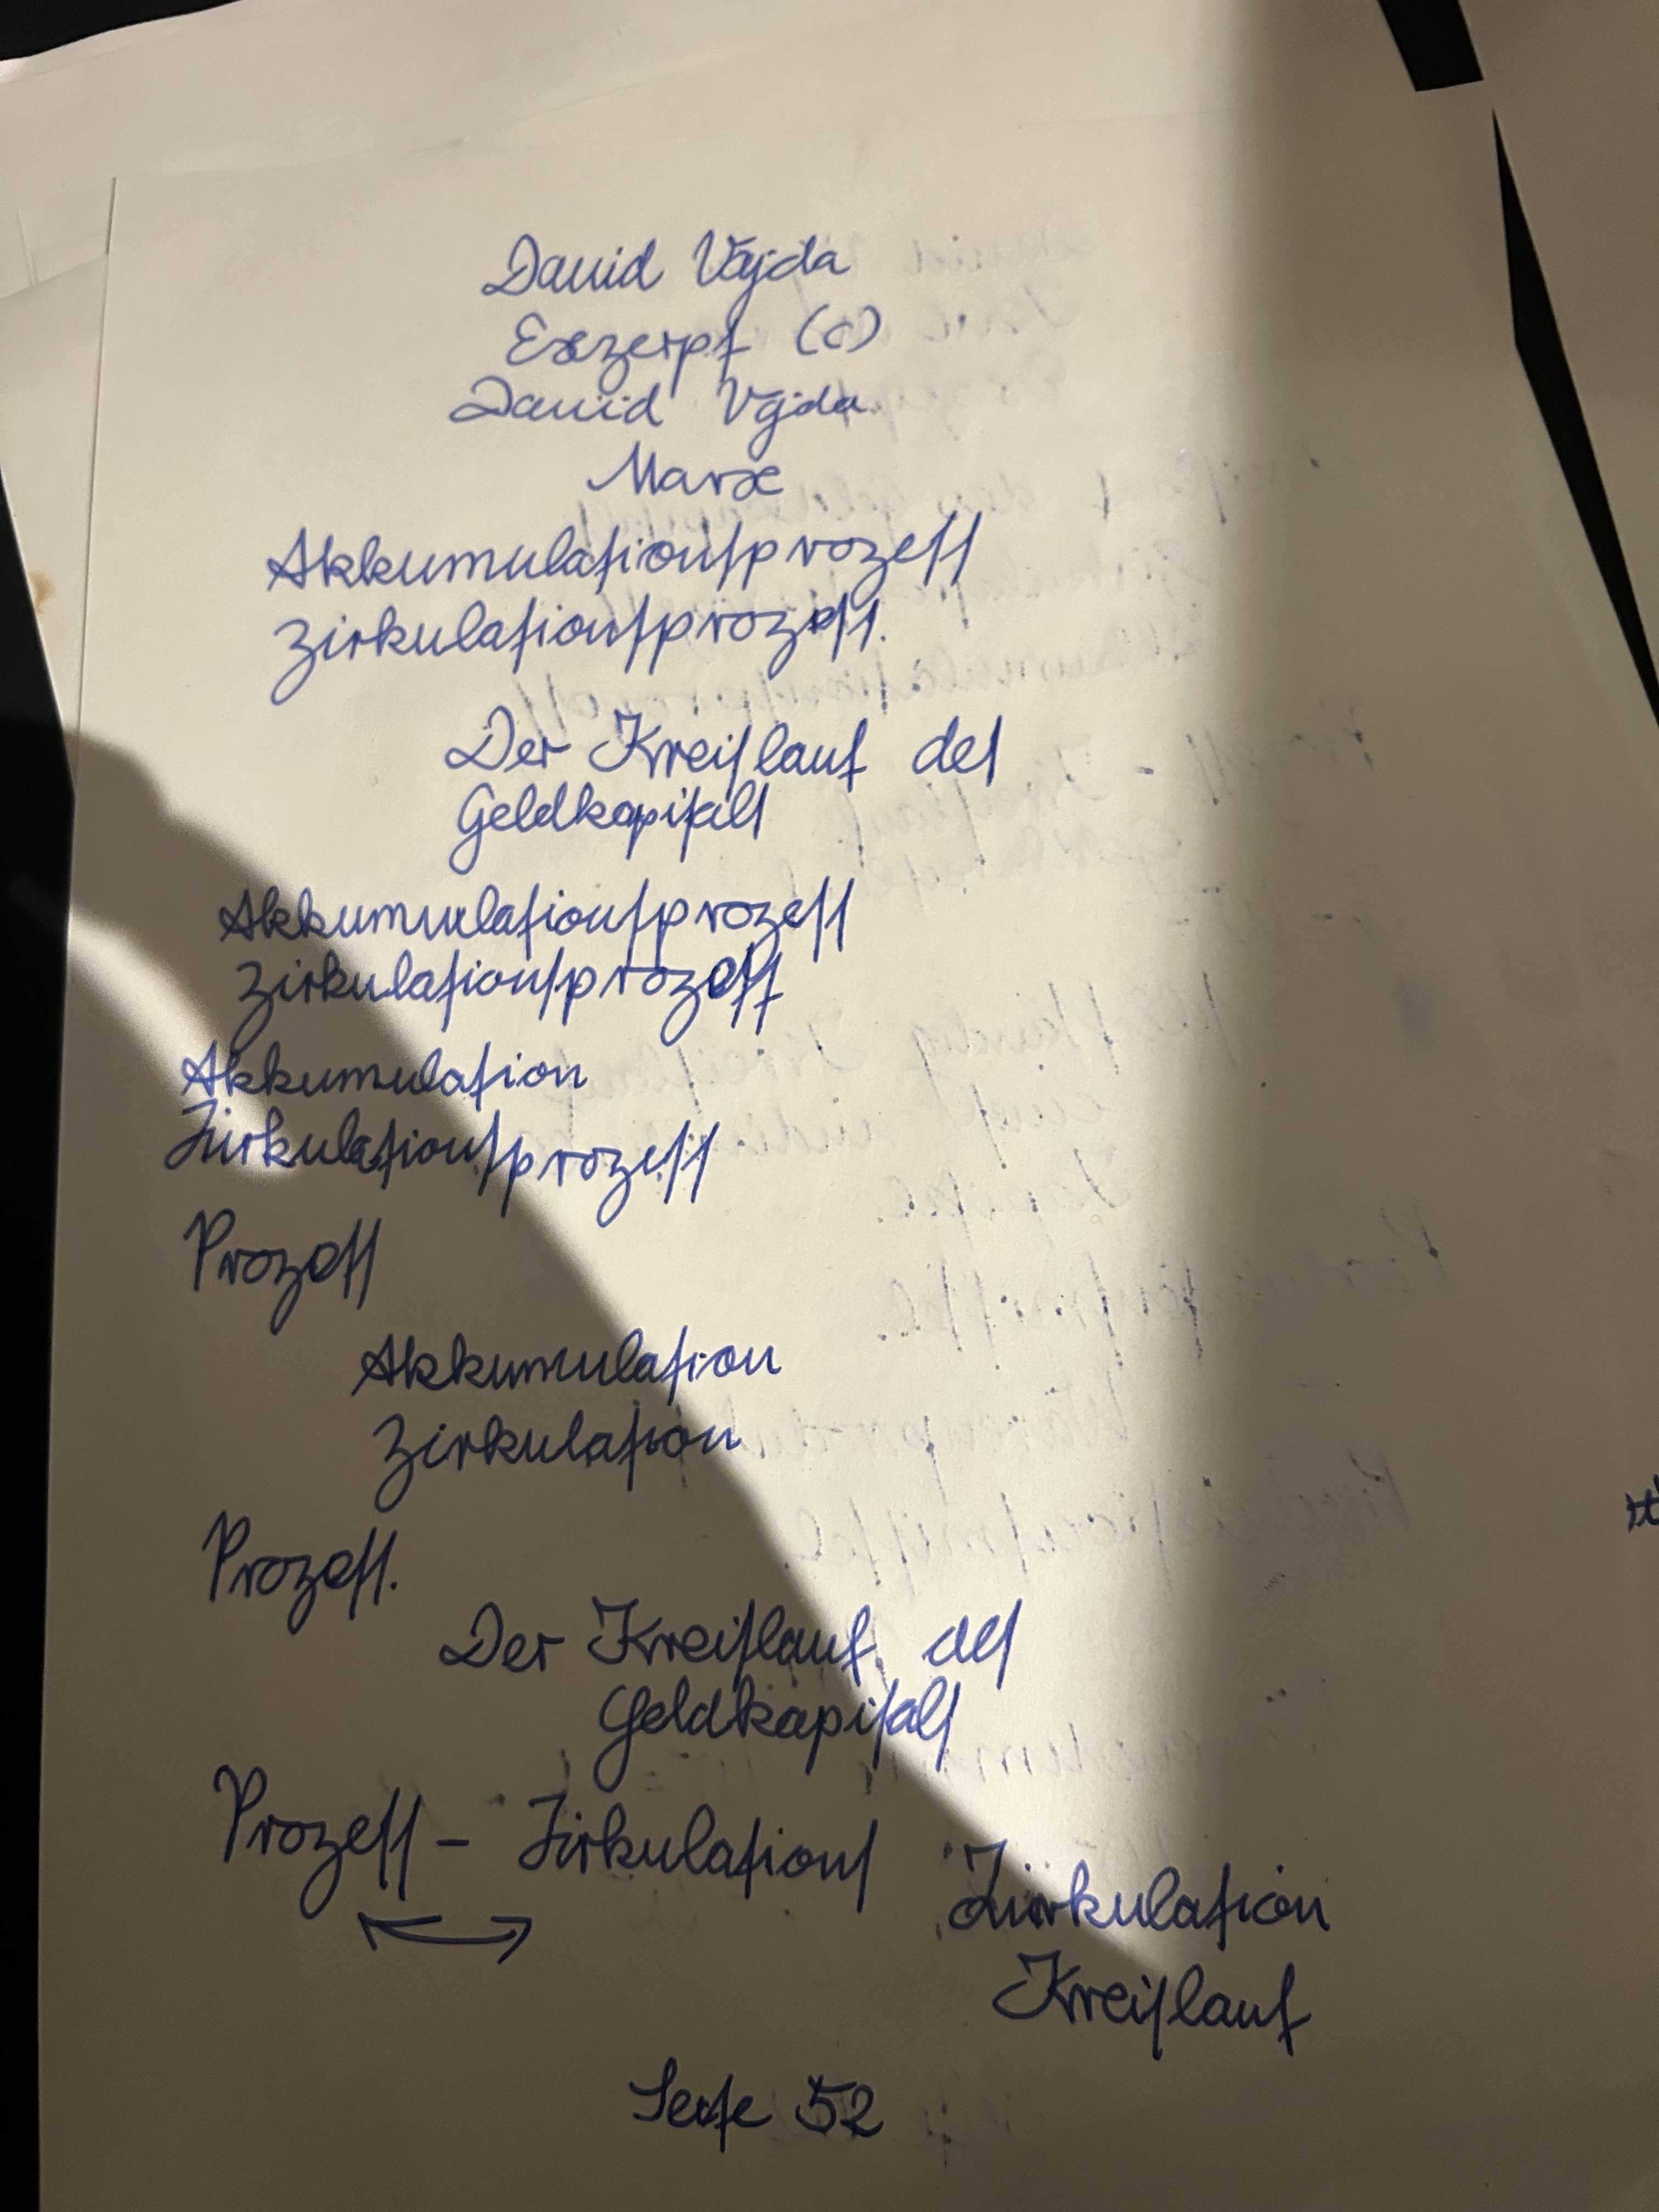 David Vajda
Exzerpt (c)
David Vajda
Marx
Akkumulationsprozess
Zirkulationsprozess.
Der Kreislauf des
Geldkapitals
Akkumulationsprozess
Zirkulationsprozess
Akkumulation
Zirkulationsprozess
Prozess
Akkumulation
Zirkulation
Prozess.
Der Kreislauf des
Geldkapitals
Prozess - Zirkulations
Zirkulation
Kreislauf
Seite 52